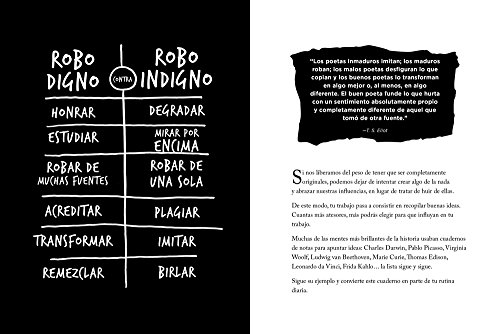 ROBO DIGNO
CONTRA
ROBO INDIGNO
HONRAR
DEGRADAR
ESTUDIAR
MIRAR POR ENCIMA
ROBAR DE MUCHAS FUENTES
ROBAR DE UNA SOLA
ACREDITAR
PLAGIAR
TRANSFORMAR
IMITAR
REMEZCLAR
BIRLAR
"Los poetas inmaduros imitan; los maduros
roban; los malos poetas desfiguran lo que
copian y los buenos poetas lo transforman
en algo mejor o, al menos, en algo
diferente. El buen poeta funde lo que hurta
con un sentimiento absolutamente propio
y completamente diferente de aquel que
tomó de otra fuente."
—T. S. Eliot
Si nos liberamos del peso de tener que ser completamente
originales, podemos dejar de intentar crear algo de la nada
y abrazar nuestras influencias, en lugar de tratar de huir de ellas.
De este modo, tu trabajo pasa a consistir en recopilar buenas ideas.
Cuantas más atesores, más podrás elegir para que influyan en tu
trabajo.
Muchas de las mentes más brillantes de la historia usaban cuadernos
de notas para apuntar ideas: Charles Darwin, Pablo Picasso, Virginia
Woolf, Ludwig van Beethoven, Marie Curie, Thomas Edison,
Leonardo da Vinci, Frida Kahlo... la lista sigue y sigue.
Sigue su ejemplo y convierte este cuaderno en parte de tu rutina
diaria.